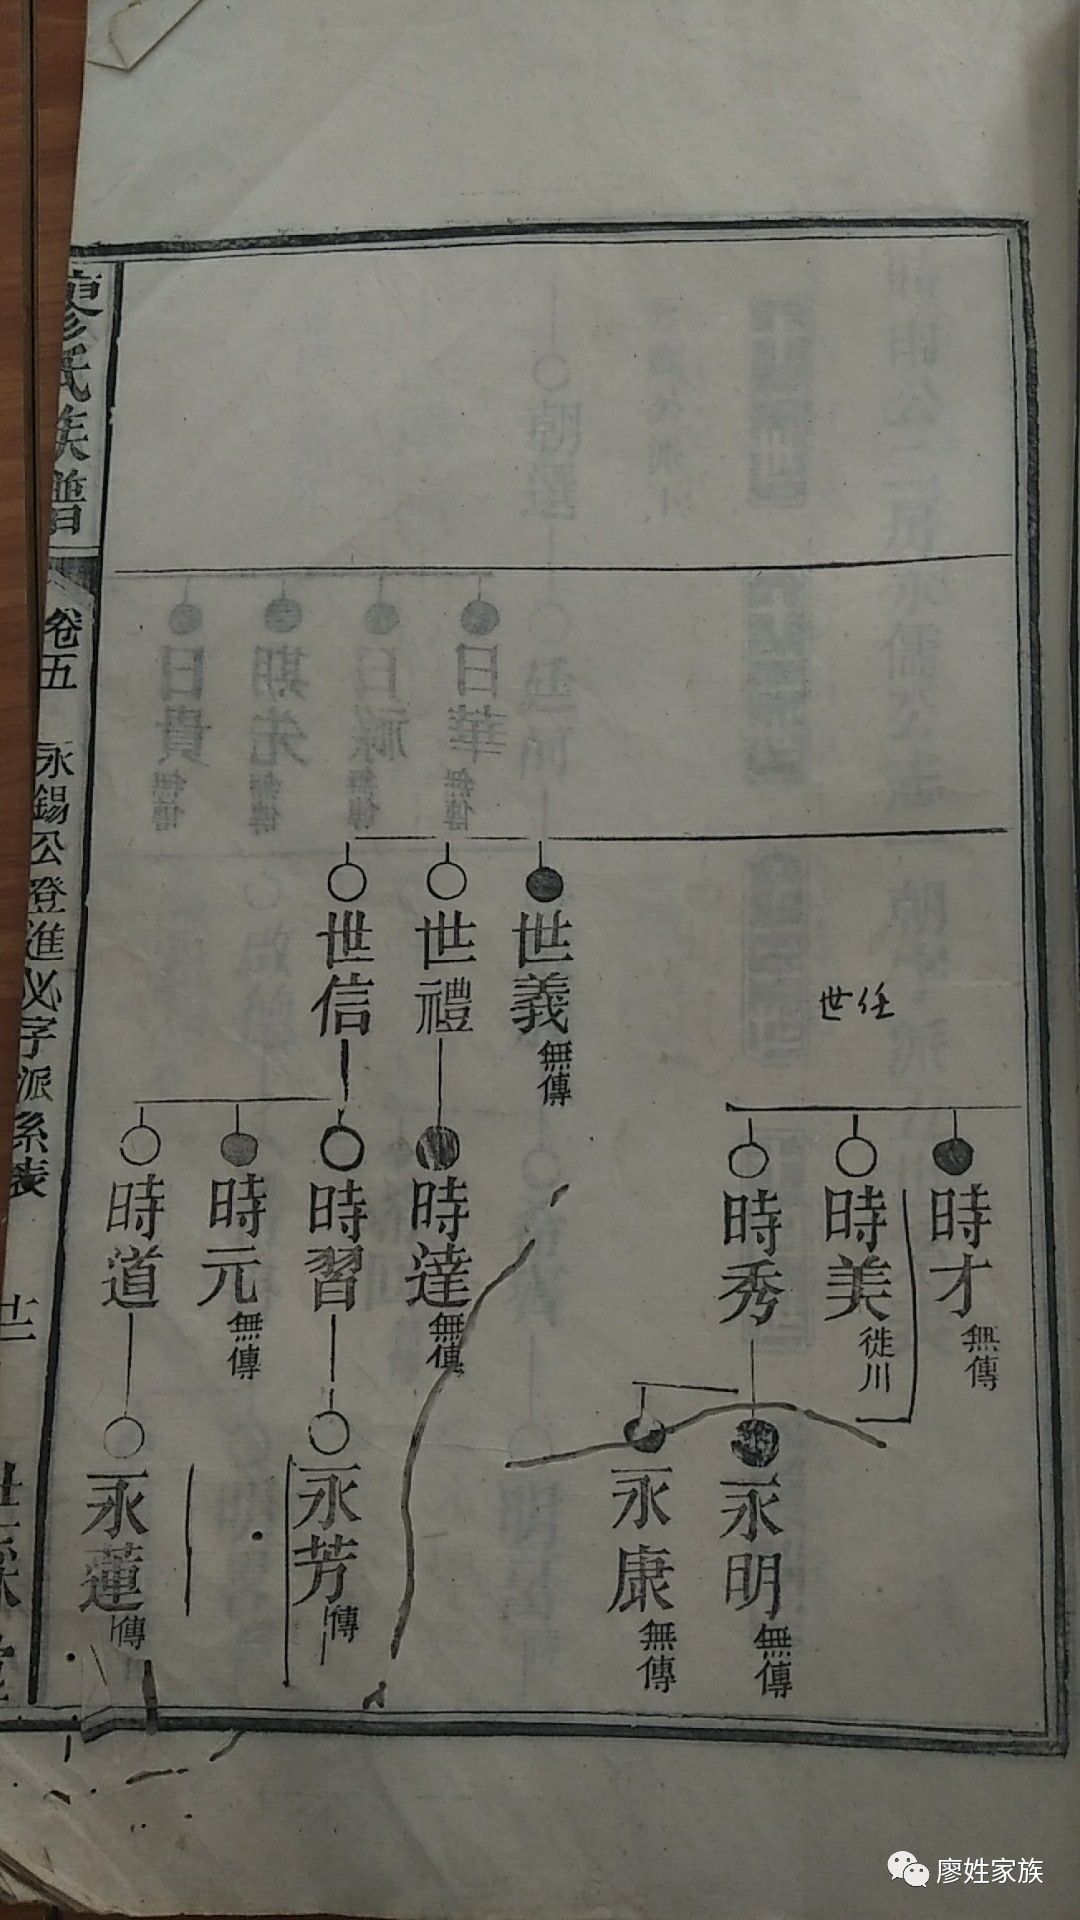 世任
世義
無傳
世禮
世信
時才
無傳
時美
徙川
時秀
時達
無傳
時習
時元
無傳
時道
永明
無傳
永康
無傳
永芳
傳
永蓮
傳
廖氏族譜
卷五
永錫公登進必字派系表
廿一
日華
無傳
日祿
無傳
期先
無傳
日貴
無傳
廖姓家族